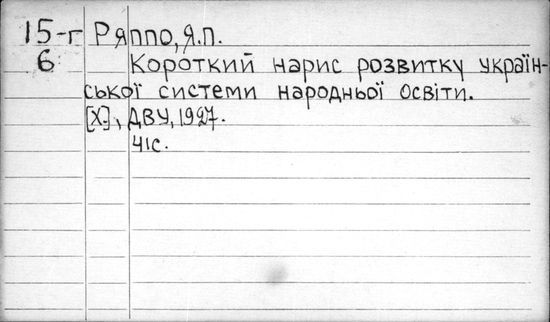 15-г Ряппо, Я.П.
6 Короткий нарис розвитку україн-
ської системи народньої освіти.
[Х]., ДВУ, 1927.
41с.